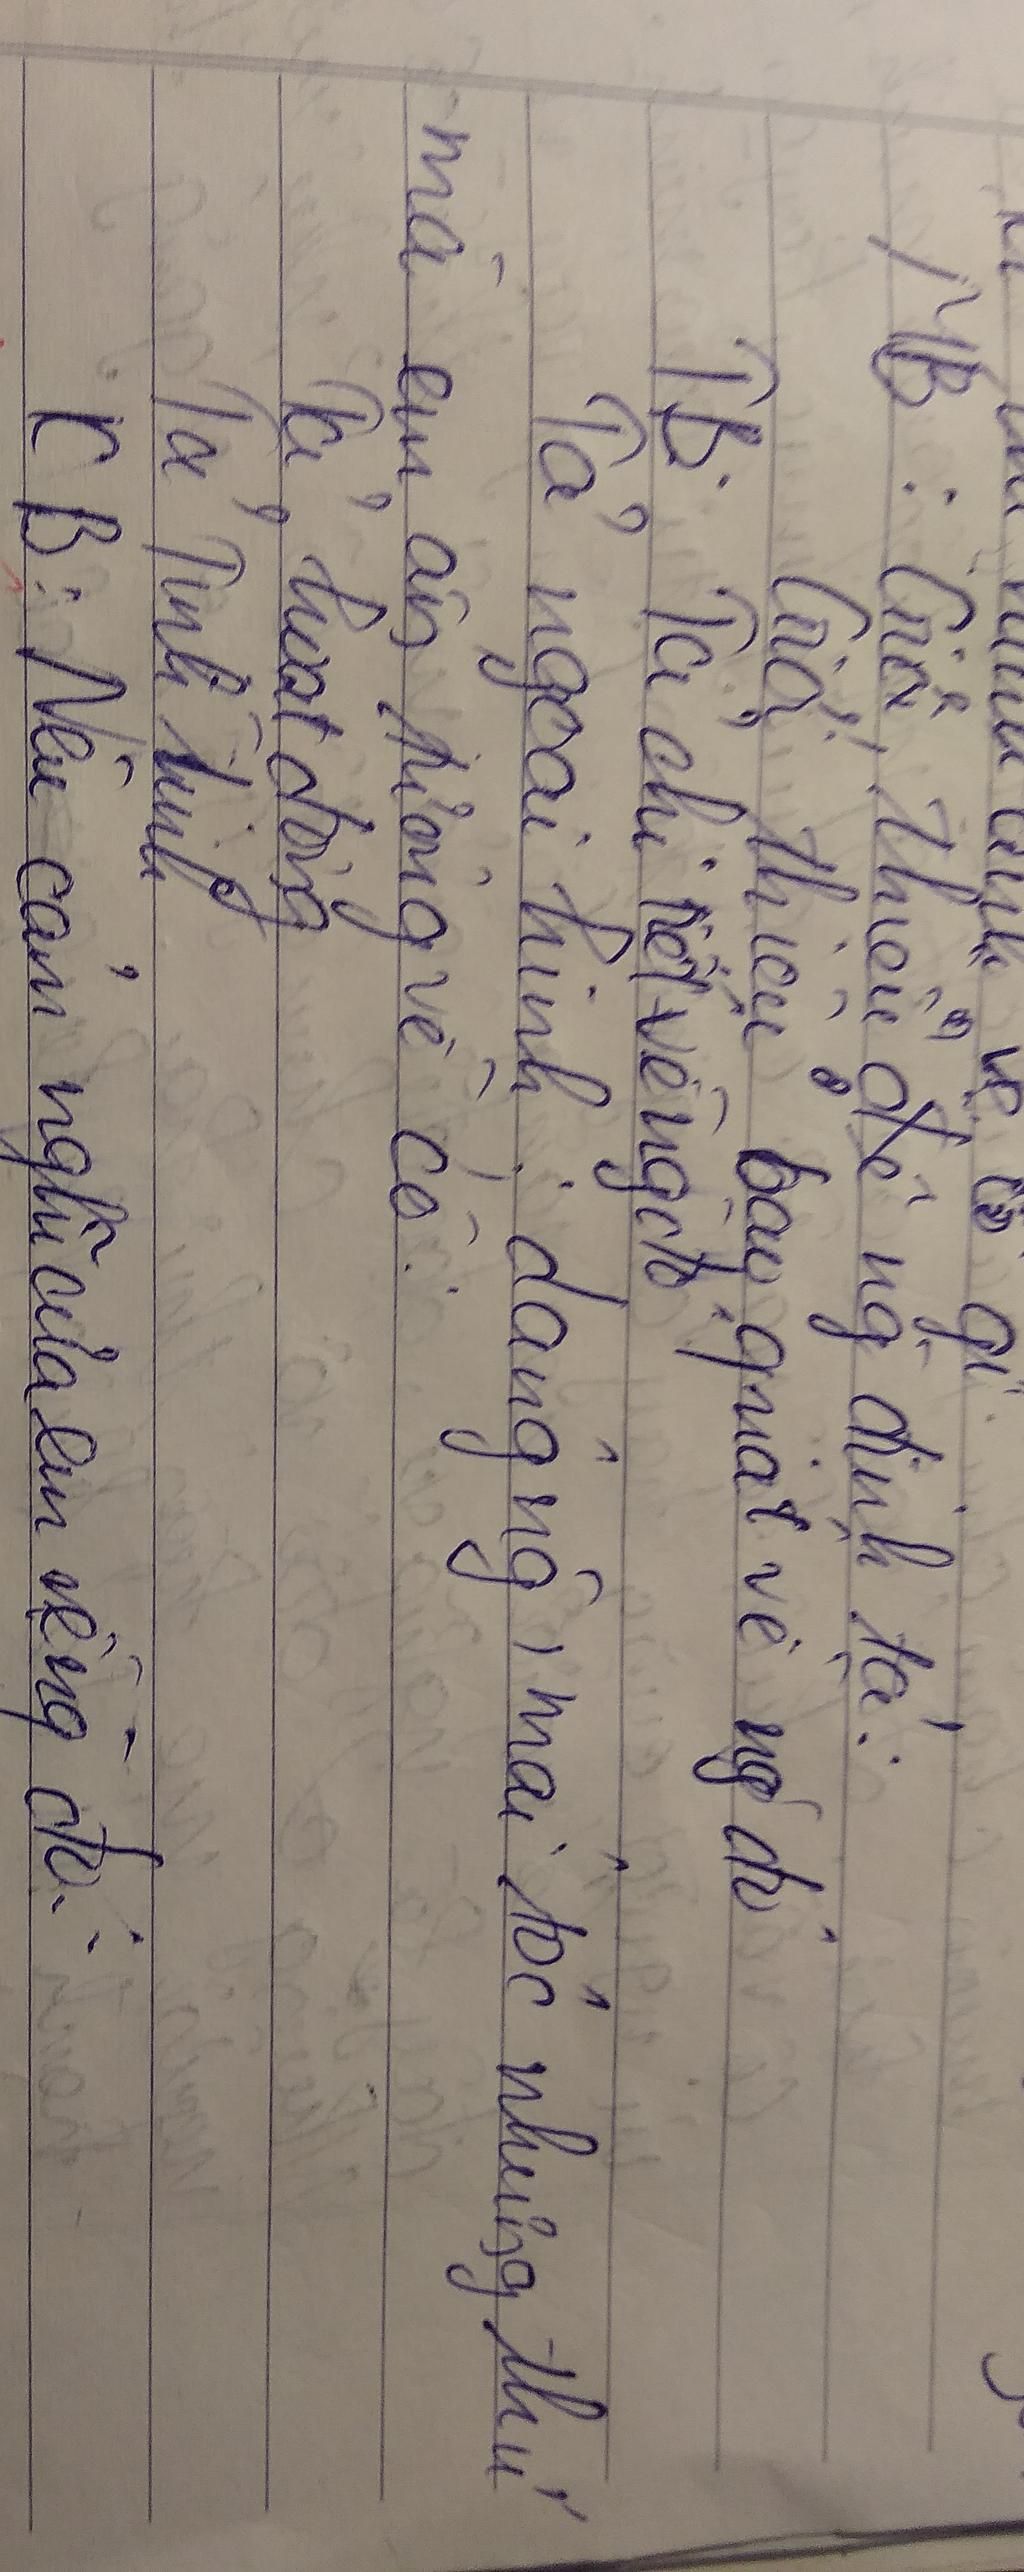 về cô gì.
MB : Giới, Thiệu về ng định tả :
Giới thiệu bao quát về ng đó
TB. Tả chi tiết về ng đó
Tả ngoại hình : dáng ng, mái tóc những thứ
mà em ấn tượng về cô.
Tả hoạt động
Tả Tính tình
KB : Nêu cảm nghĩ của em về ng đó.